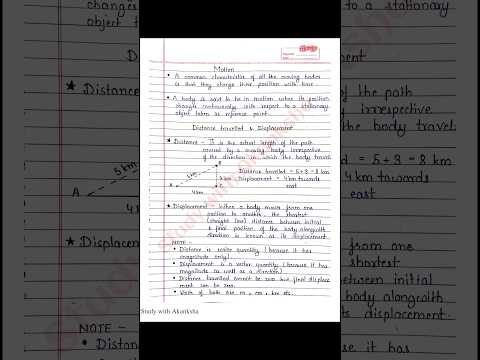 Motion
• A common characteristic of all the moving bodies
is that they change their position with time
• A body is said to be in motion when its position
changes continuously with respect to a stationary
object taken as reference point.
Distance travelled & Displacement
★ Distance - It is the actual length of the path
covered by a moving body irrespective
of the direction in which the body travels
5 km
B
Distance travelled = 5+3 = 8 km
A
3 km
Displacement = 4 km towards
4 km
C
east
★ Displacement - When a body moves from one
position to another, the shortest
(straight line) distance between initial
& final position of the body alongwith
direction is known as its displacement.
NOTE -
• Distance is scalar quantity (because it has
magnitude only)
• Displacement is a vector quantity (because it has
magnitude as well as a direction)
• Distance travelled cannot be zero but final displace
ment can be zero.
• Units of both are m, cm, km etc.
Study with Akanksha
changes
object t
★ Distance
5 km
A
4
★ Displacem
NOTE -
• Distan
to a stationary
of the path
irrespective
the body travel
= 5+3 = 8 km
4 km towards
east
from one
shortest
between initial
body alongwith
ts displacement.
use it has